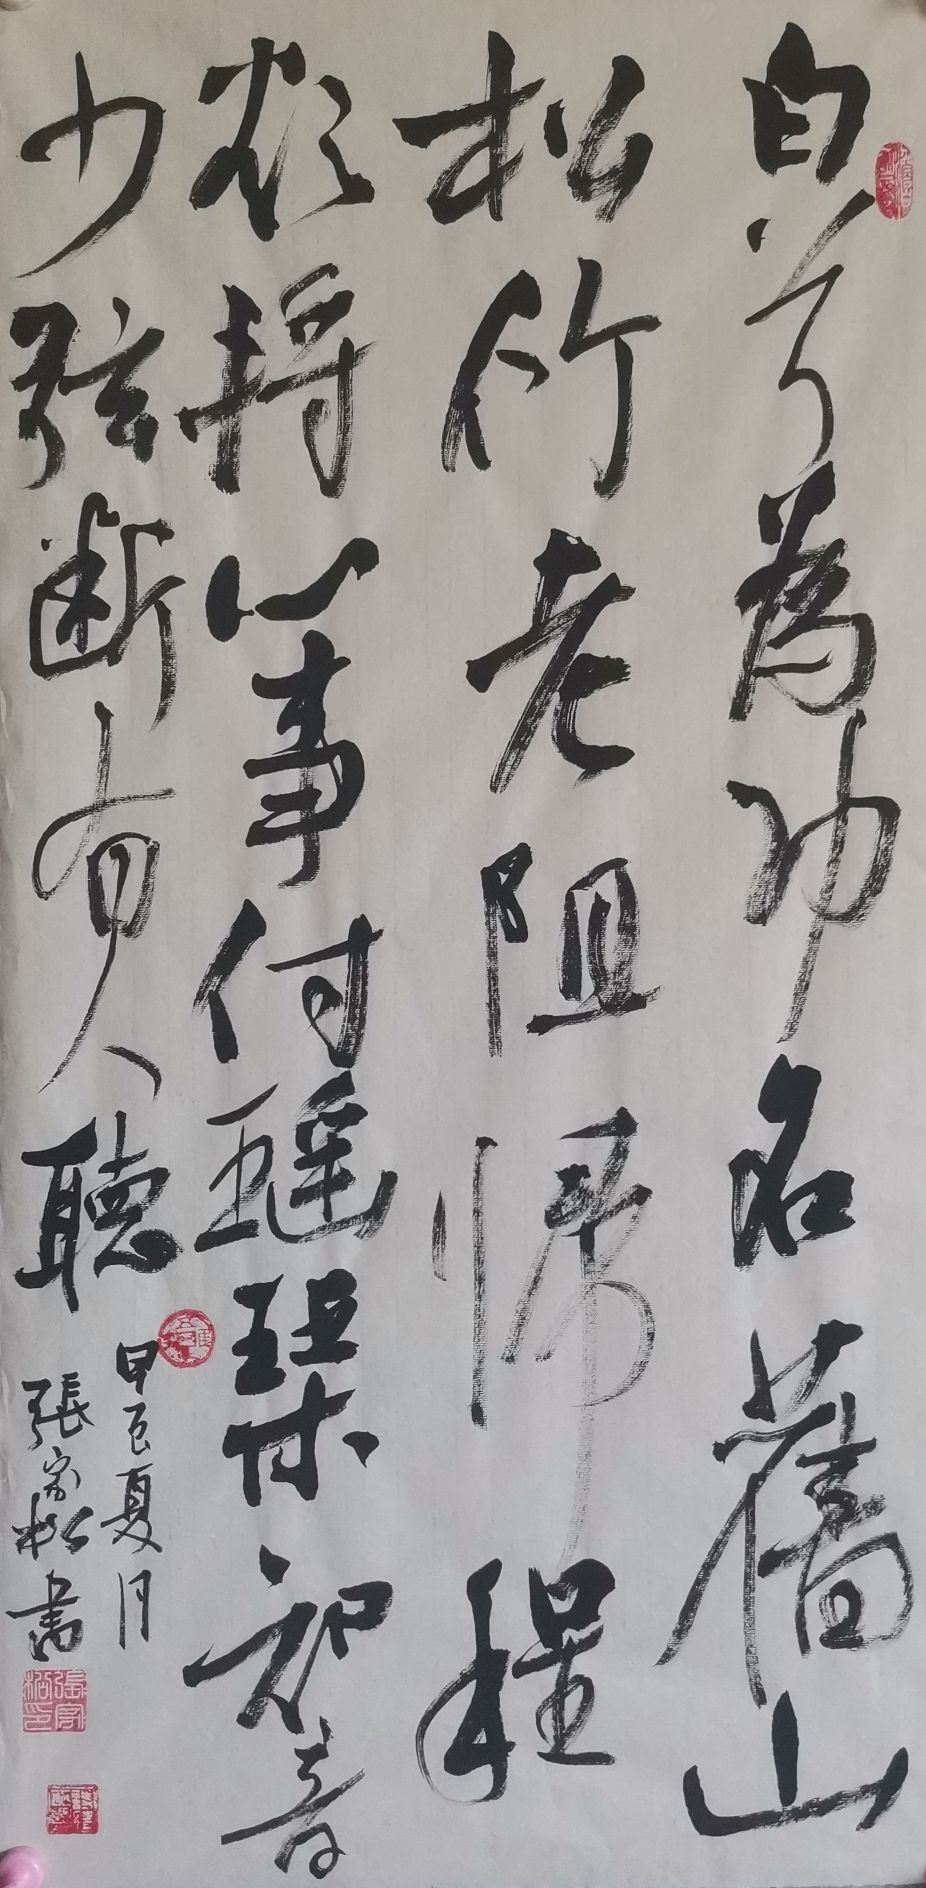 白首為功名舊山
松竹老阻歸程
欲將心事付瑤琴知音
少弦斷有人聽
甲辰夏月
張家松書